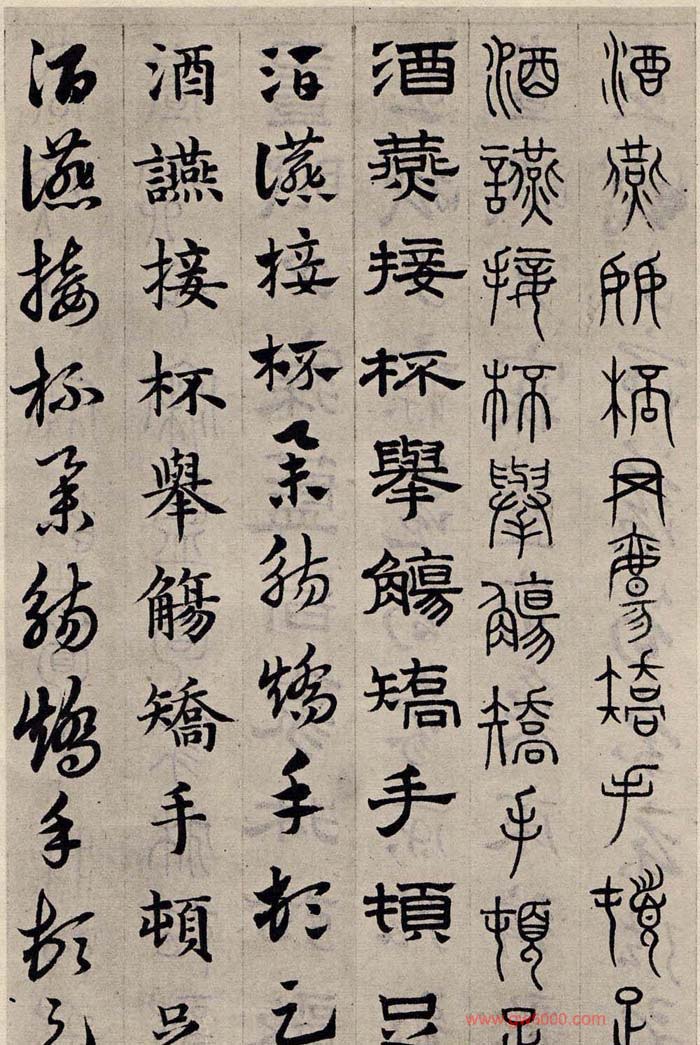 酒讌接杯舉觴矯手頓足
酒讌接杯舉觴矯手頓足
酒燕接杯舉觴矯手頓足
酒讌接杯舉觴矯手頓足
酒讌接杯舉觴矯手頓足
酒讌接杯舉觴矯手頓足
www.gw5000.com